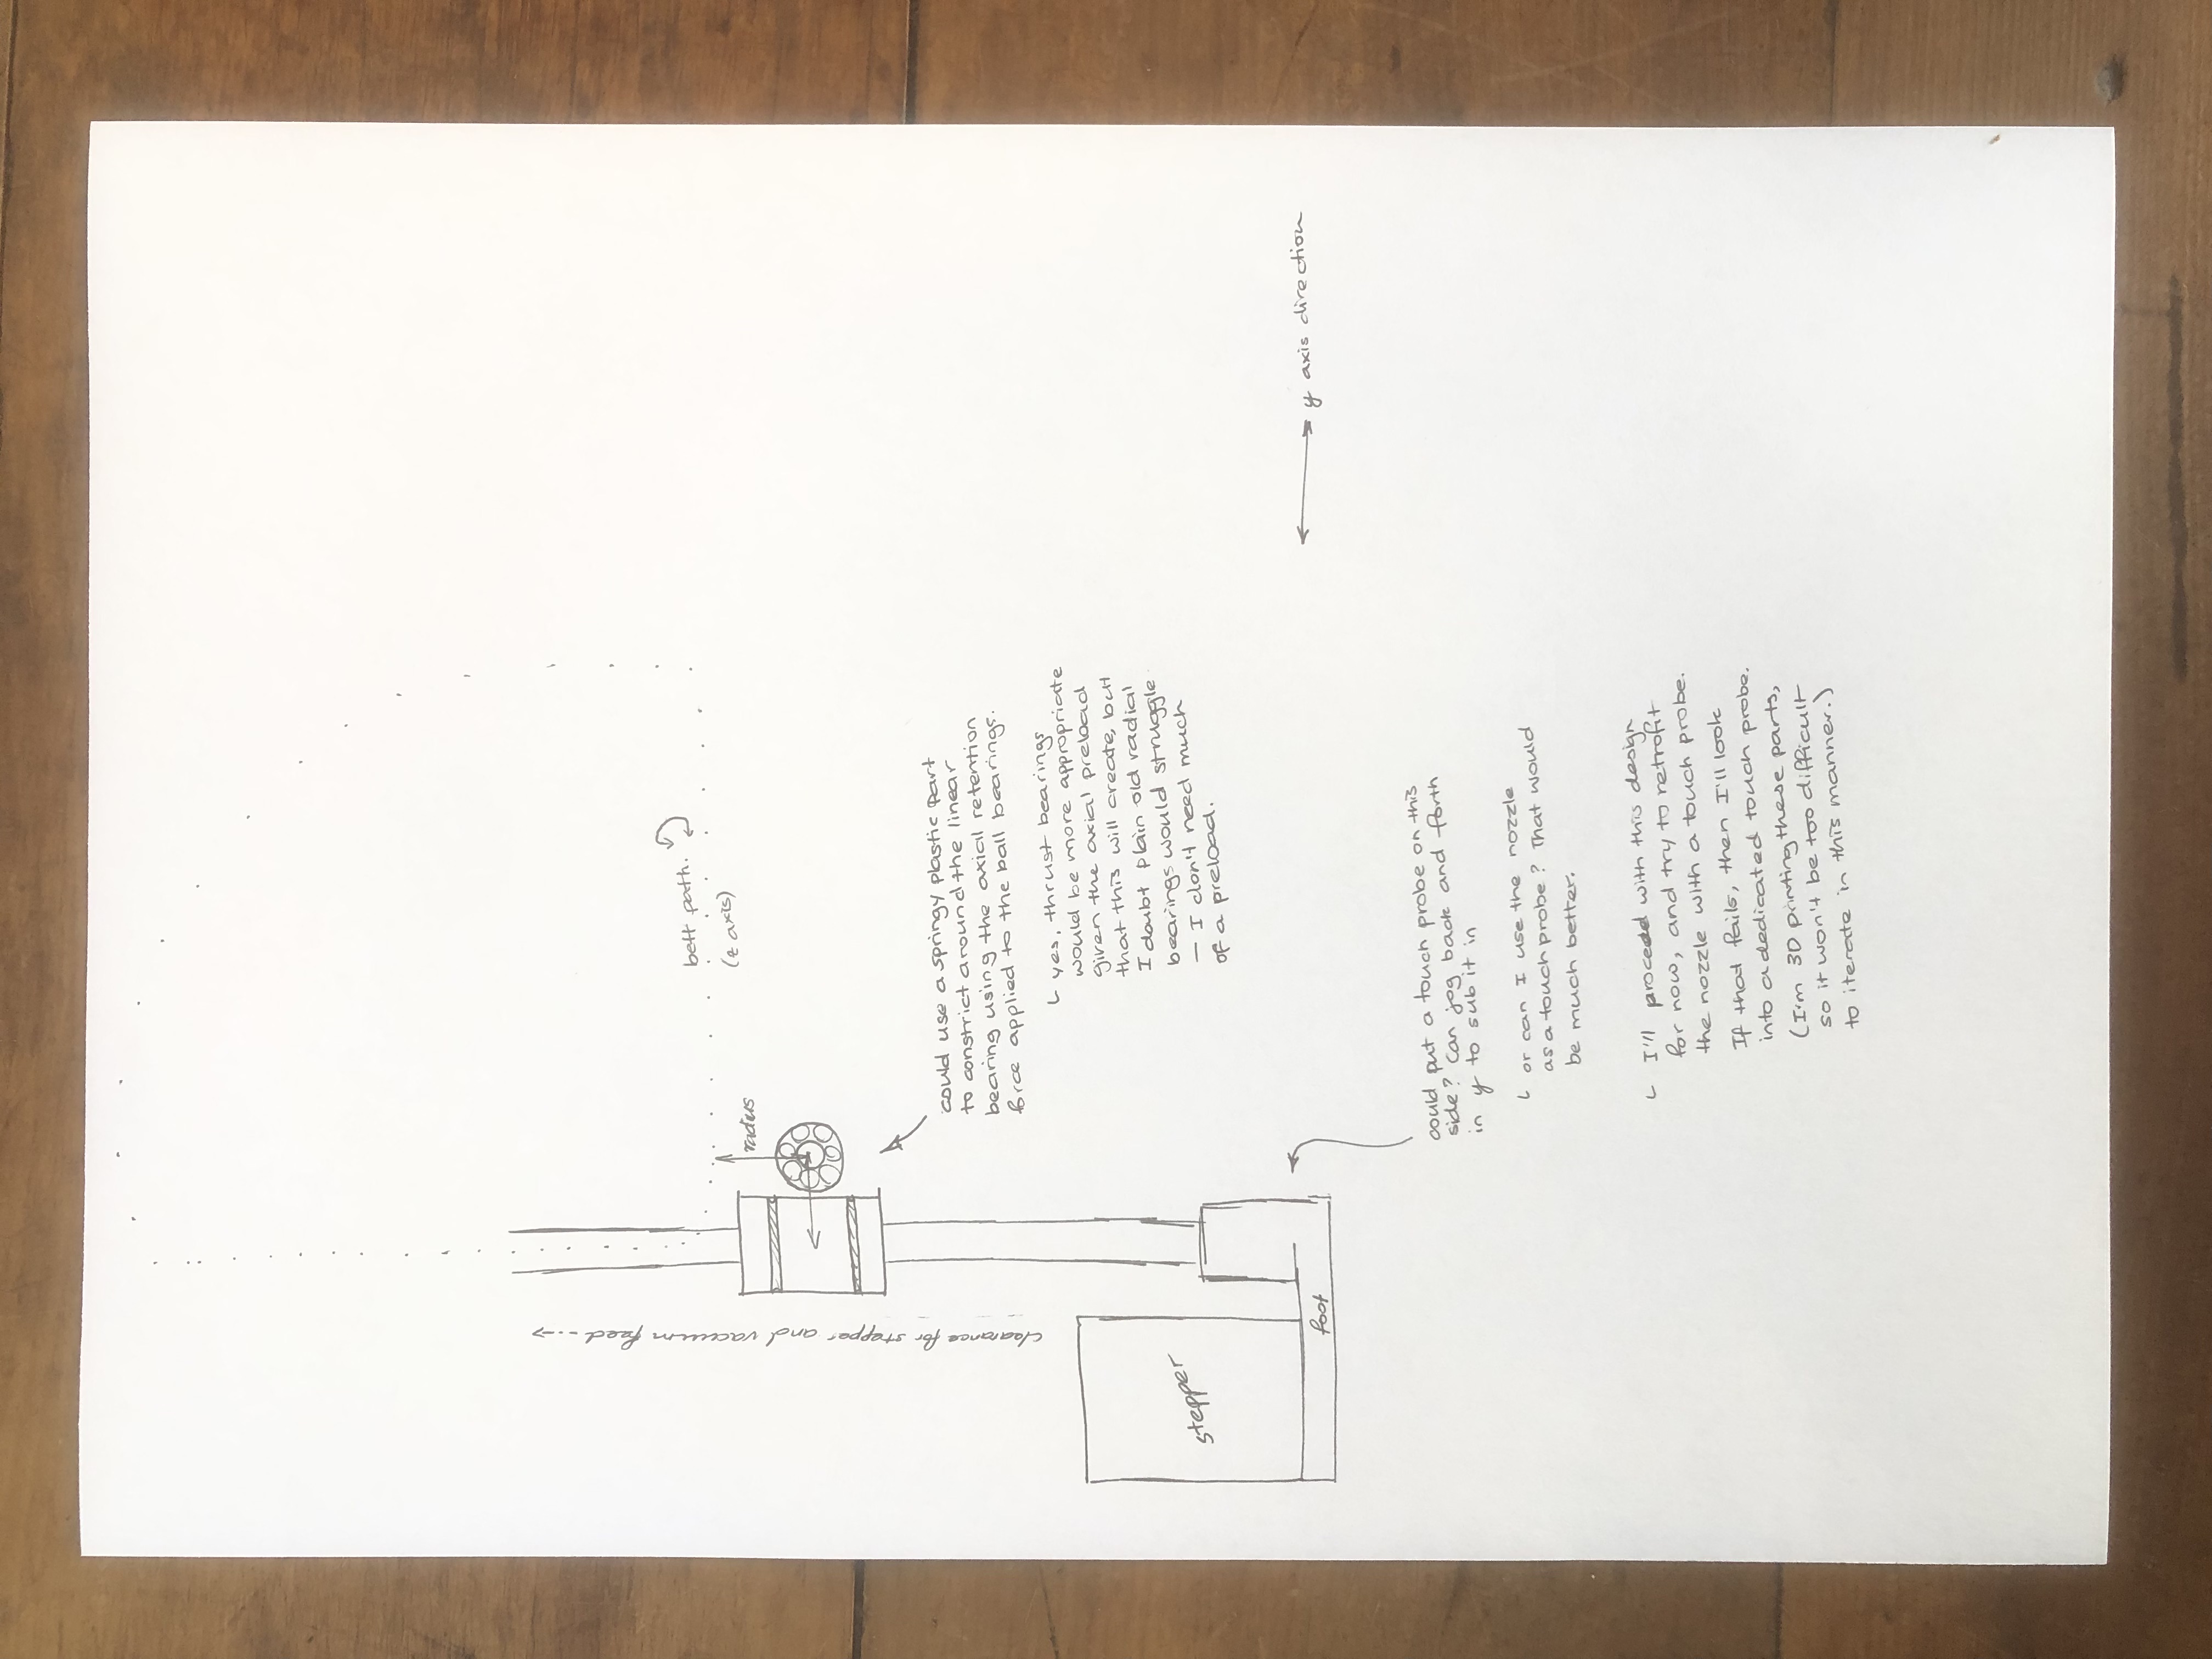 clearance for stepper and vacuum feed --->
belt path.
(z axis)
radius
could use a springy plastic part
to constrict around the linear
bearing using the axial retention
force applied to the ball bearings.
yes, thrust bearings
would be more appropriate
given the axial preload
that this will create, but
I doubt plain old radial
bearings would struggle
— I don't need much
of a preload.
stepper
foot
y axis direction
could put a touch probe on this
side? Can jog back and forth
in y to sub it in
or can I use the nozzle
as a touch probe? That would
be much better.
I'll proceed with this design
for now, and try to retrofit
the nozzle with a touch probe.
If that fails, then I'll look
into a dedicated touch probe.
(I'm 3D printing these parts,
so it won't be too difficult
to iterate in this manner.)